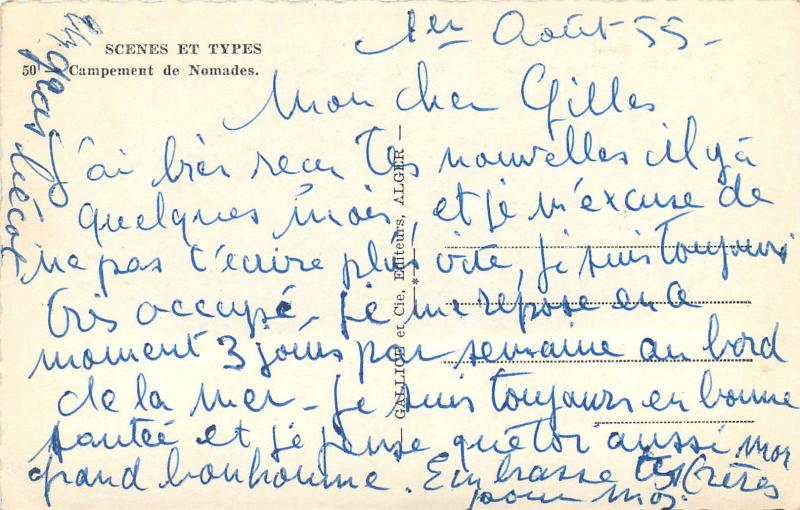 SCENES ET TYPES
50 Campement de Nomades.
GALLICE et Cie, Editeurs, ALGER
1er Août 55-
Mon cher Gilles
J'ai bien recu tes nouvelles il y à
quelques mois, et je m'excuse de
ne pas t'écrire plus vite, je suis toujours
très occupé - je me repose en ce
moment 3 jours par semaine au bord
de la mer - Je suis toujours en bonne
santée et je pense que toi aussi mon
grand bonhomme. Embrasse tes frères
pour moi.